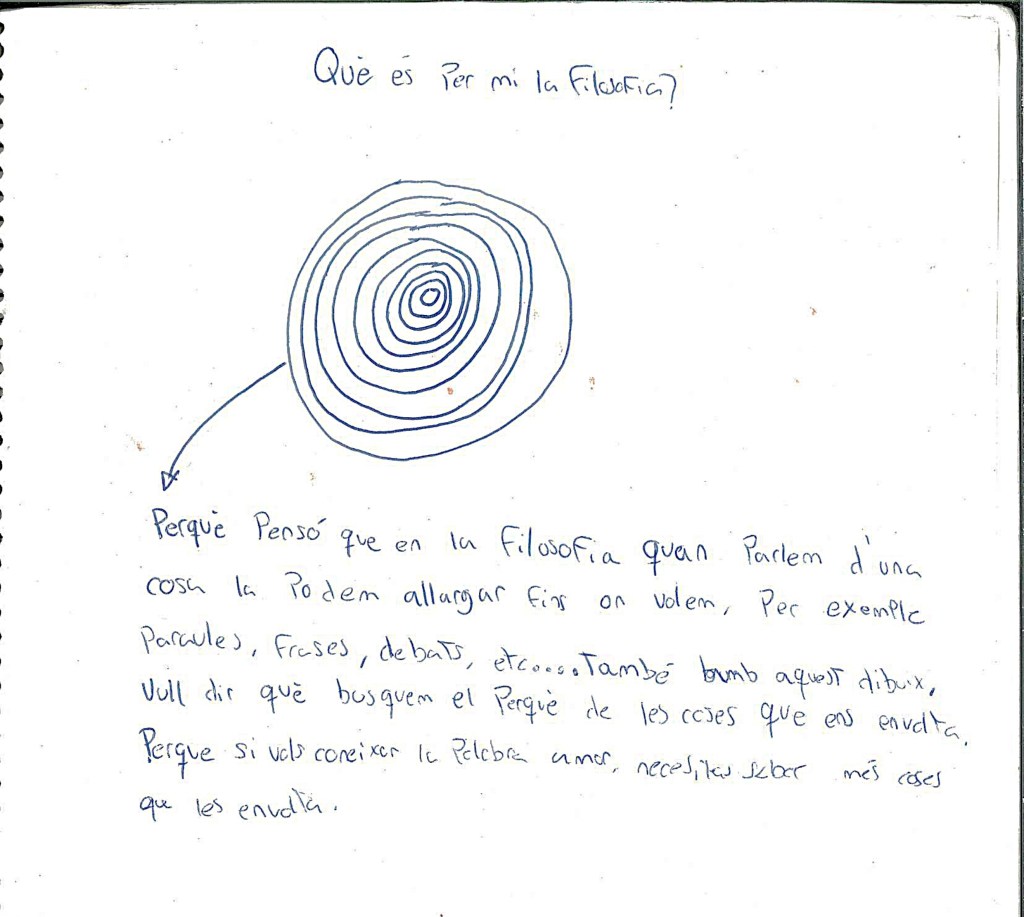 Què és Per mi la Filosofia?
Perquè Pensó que en la Filosofia quan Parlem d'una
cosa la Podem allargar fins on volem, Per exemple
Paraules, Frases, debats, etc..... També amb aquest dibuix,
Vull dir què busquem el Perquè de les coses que ens envolta.
Perque si vols coneixer la Palabra amor, necesites saber més coses
que les envolta.